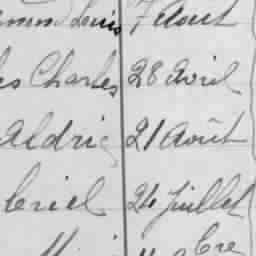 Louis 7 Août
Charles 28 Avril
Aldric 21 Août
briel 24 Juillet
bre